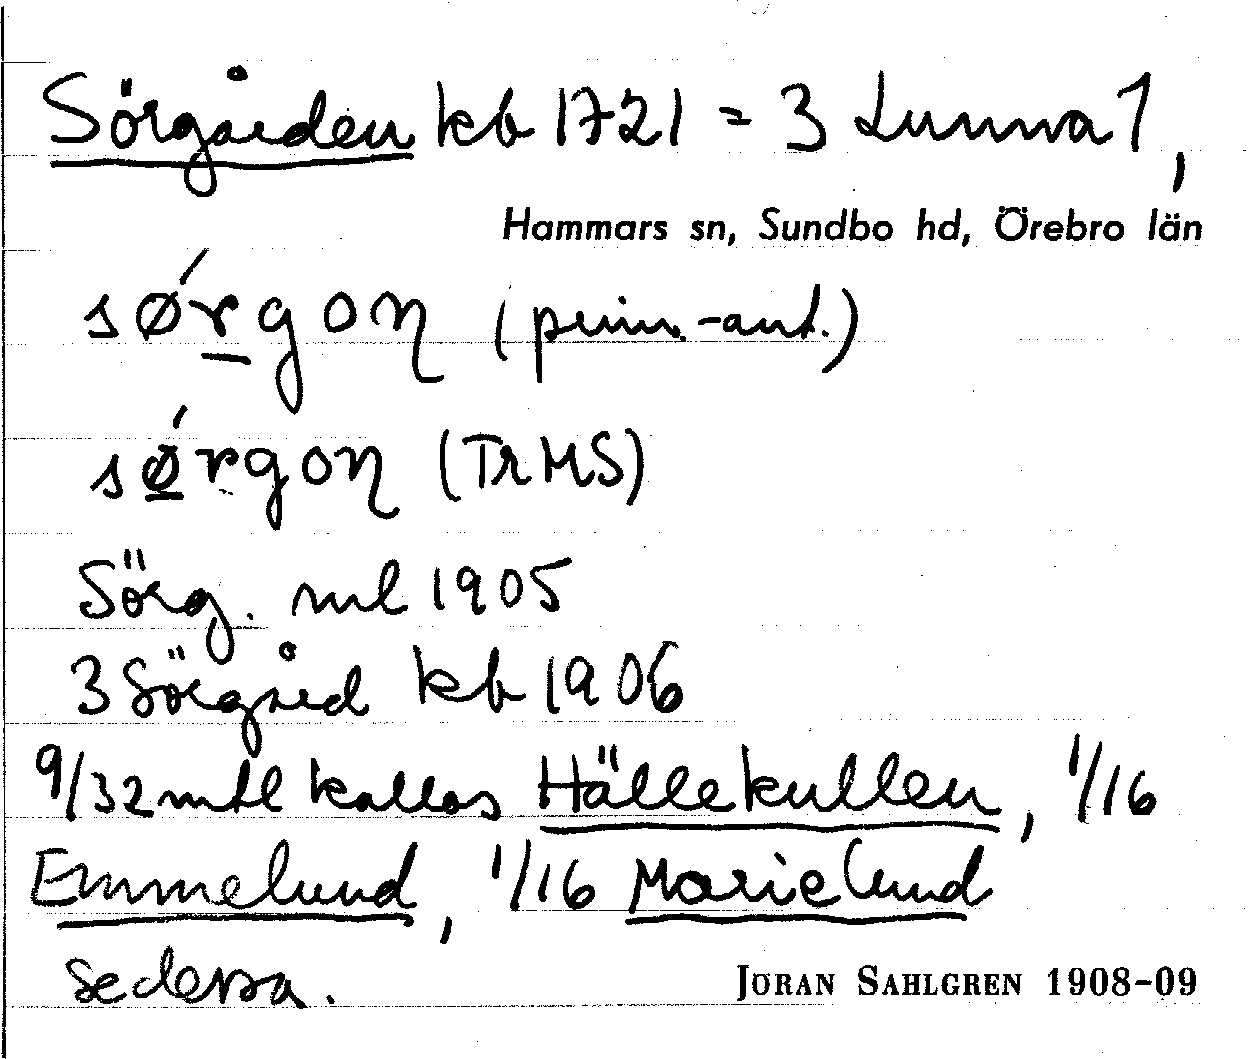 Sörgården kb 1721 = 3 Lunna 1,
Hammars sn, Sundbo hd, Örebro län
sǿrgon (prim.-ant.)
sǿrgon (TrMS)
Sörg. ml 1905
3 Sörgård kb 1906
9/32 mtl kallas Hällekullen, 1/16
Emmelund, 1/16 Marielund
se dessa.
JÖRAN SAHLGREN 1908-09